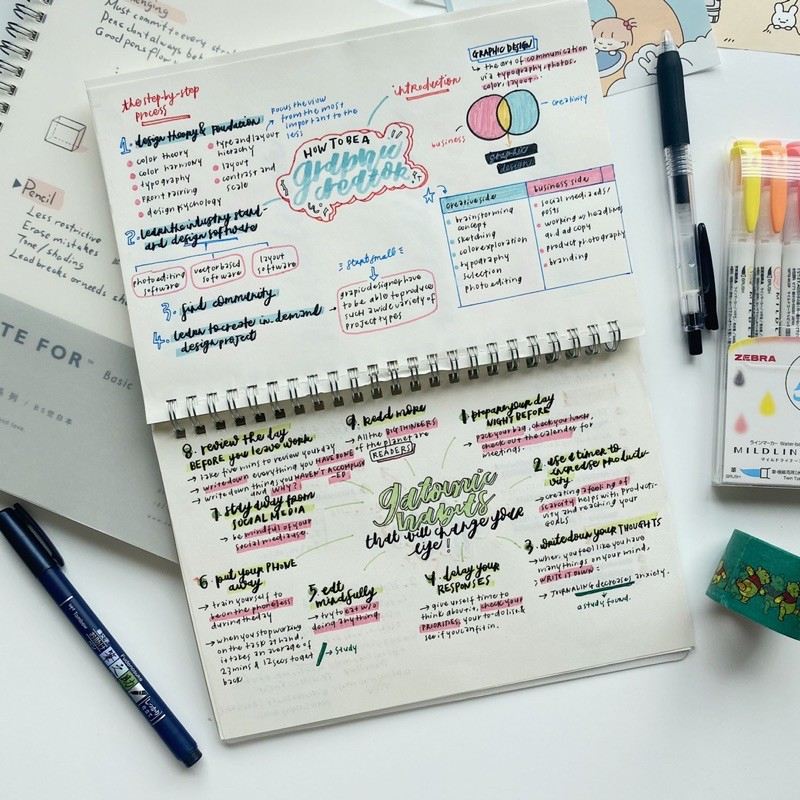 Must commit to every
Pens don't always
Good pens flow
Pencil
Less restrictive
Erase mistakes
Tone/shading
Lead breaks or needs
TE FOR™ Basic
the step-by-step
process
introduction
HOW TO BE A
graphic
creator
GRAPHIC DESIGN
↳ the art of communication
via typography, photos,
color, layout...
creativity
business
graphic
design
1. design theory & foundation
color theory
color harmony
typography
design psychology
type and layout
hierarchy
layout
contrast and
scale
focus the view
from the most
important to the
less
2. learn the industry stand-
ard design software
photo editing
software
vector based
software
layout
software
3. find community
4. learn to create in-demand
design project
start small
graphic designer have
to be able to produce
such a wide variety of
project types
creative side
brainstorming
concept
sketching
color exploration
typography
selection
photo editing
business side
social media ads/
posts
working w/ headlines
and ad copy
product photography
branding
9 atomic
habits
that will change your
life!
1. prepare your day
NIGHT BEFORE
→ pack your bag, check your
check out the calendar for
meetings.
2. use a timer to
increase producti-
vity
→ creating a feeling of
scarcity helps with producti-
vity and reaching your
GOALS
3. write down your THOUGHTS
→ when you feel like you have
many things on your mind,
WRITE IT DOWN!
→ JOURNALING decreases anxiety.
a study found.
4. delay your
RESPONSES
→ give urself time to
think above it, check your
PRIORITIES, your to do list &
see if you can fit in.
5. eat
mindfully
→ try to eat w/o
doing anything
→ study
6. put your PHONE
away
→ train yourself to
be on the phone less
during the day
→ when you stop working
on the task at hand,
it takes an average of
23 mins & 12 secs to get
back
7. stay away from
SOCIAL MEDIA
→ be mindful of your
social media use.
8. review the day
BEFORE you leave work
→ take five mins to review your day
→ write down everything you HAVE DONE
→ write down things you HAVEN'T ACCOMPLISH
ED and WHY?
9. read more
→ All the BIG THINKERS
of the planet are
READERS
ZEBRA
MILDLIN